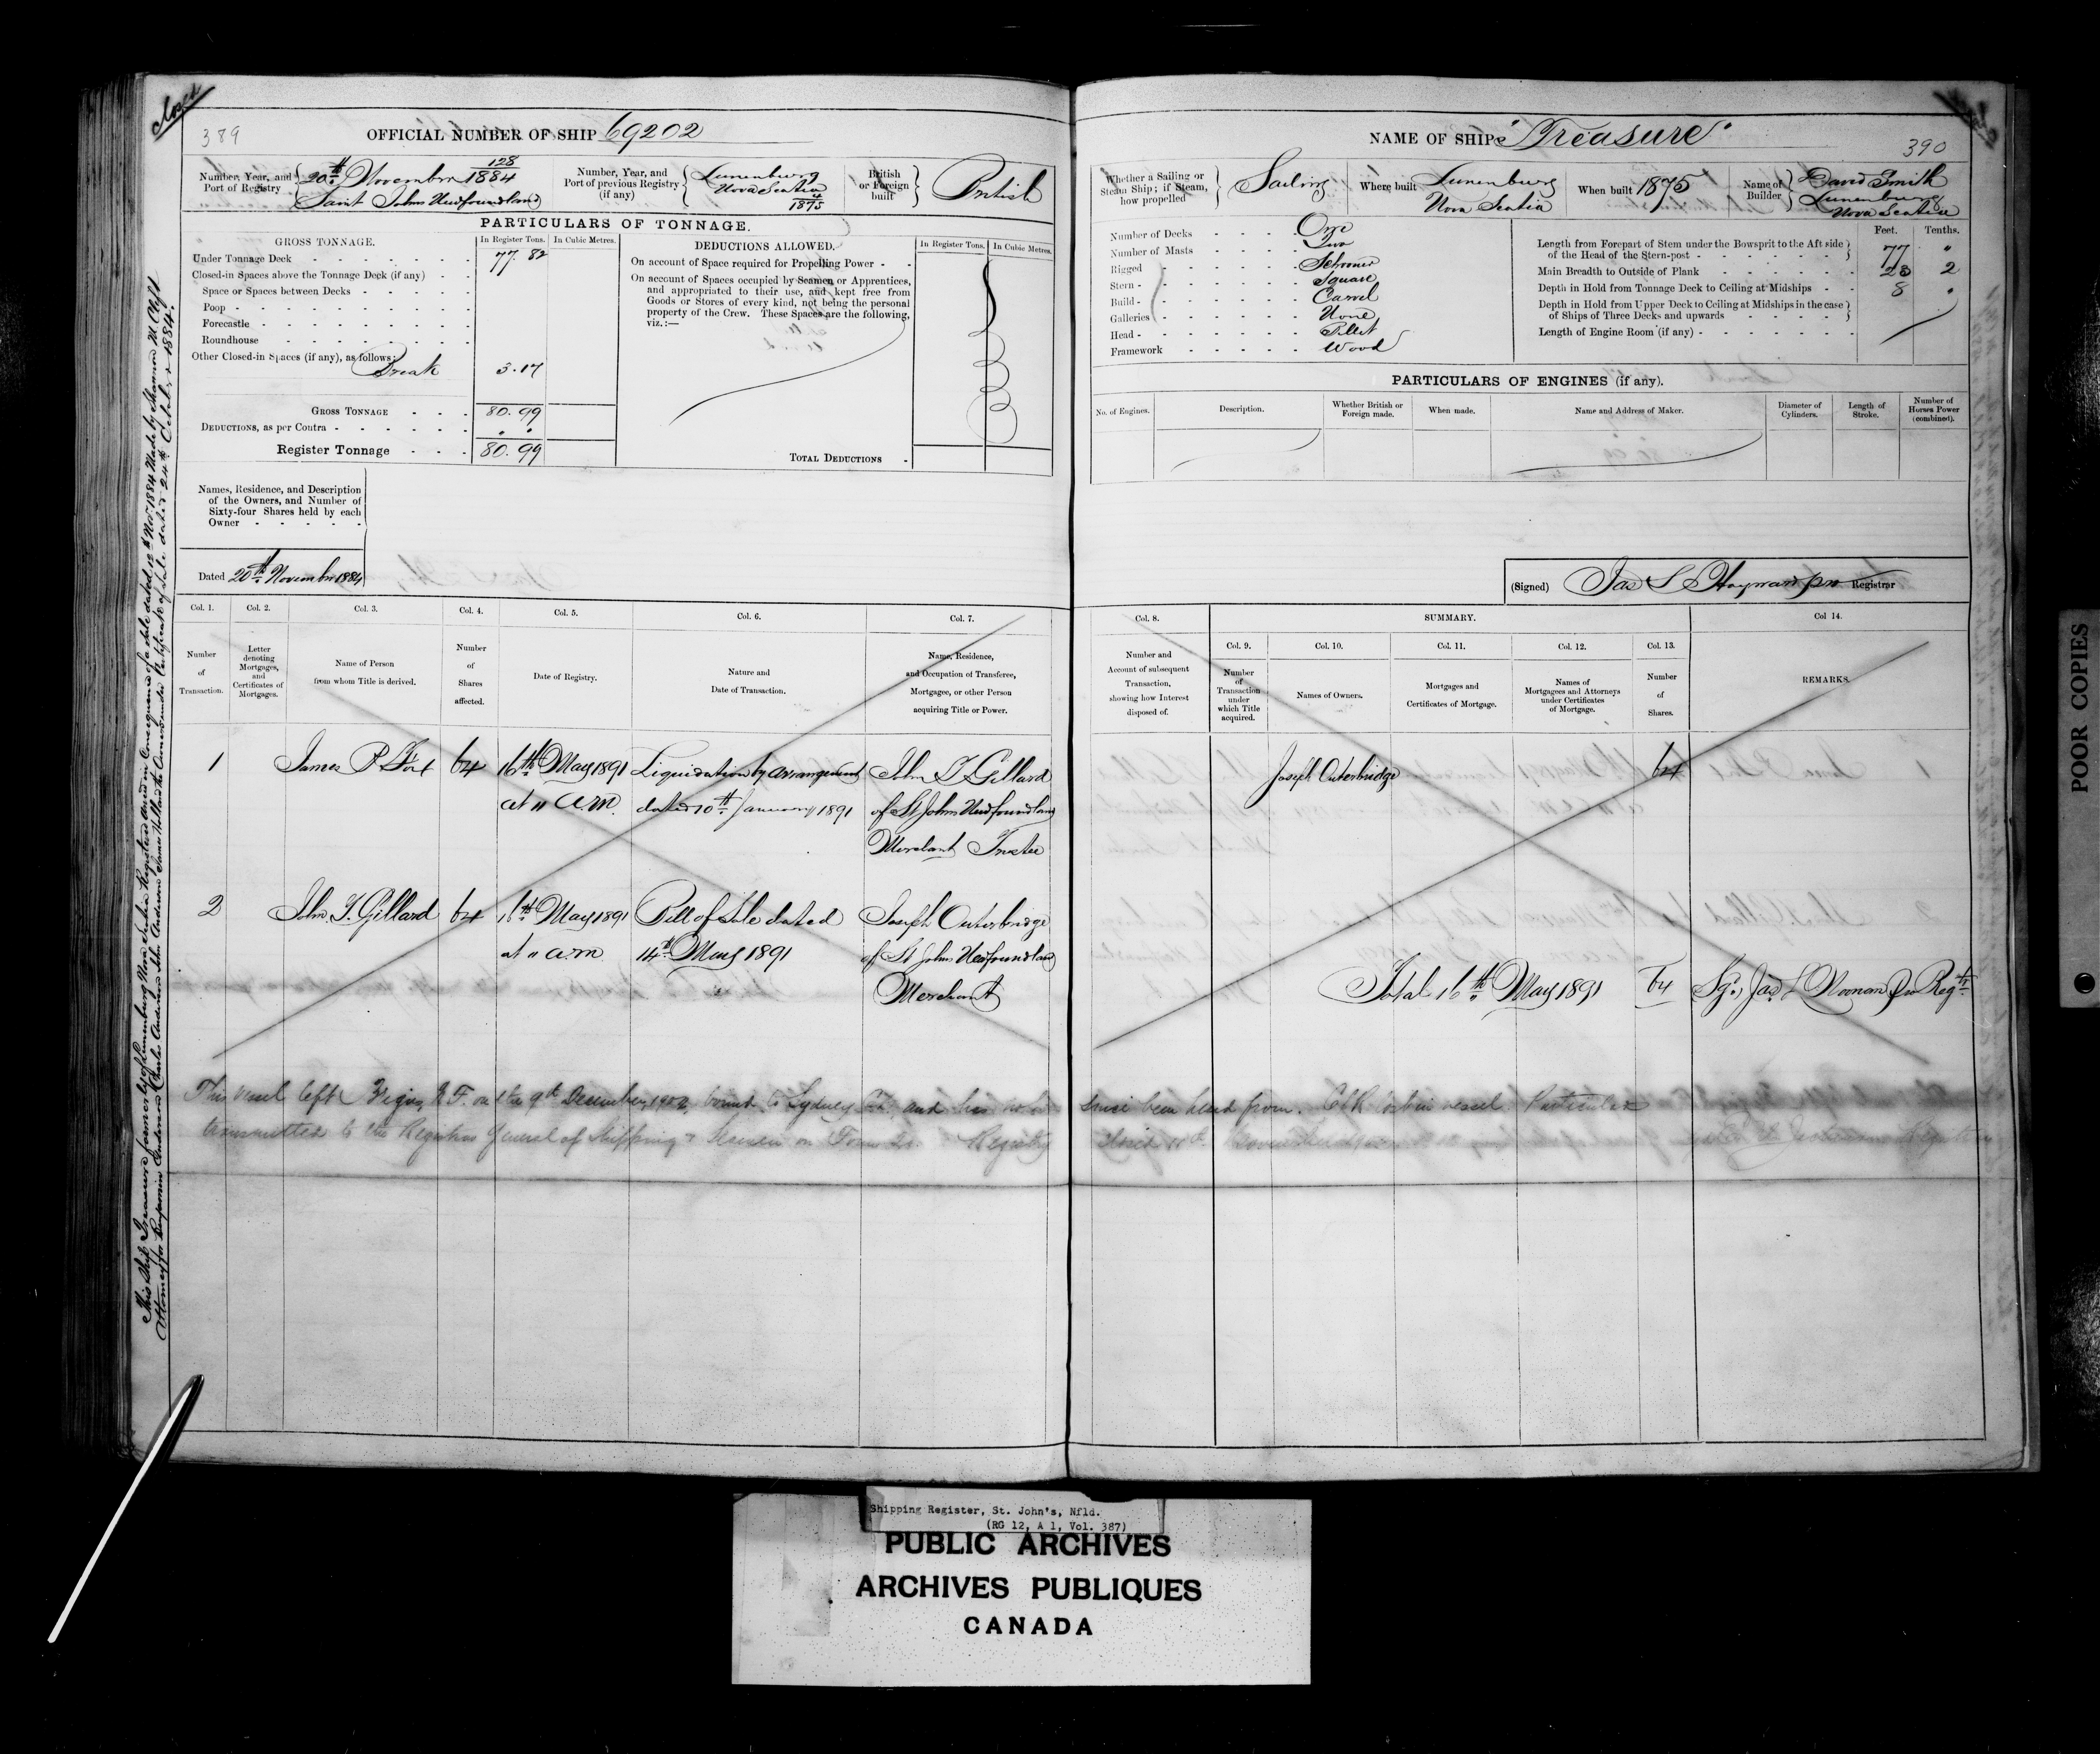 Closed
389
OFFICIAL NUMBER OF SHIP 69202
Number, Year, and Port of Registry
128
20th November 1884
Saint Johns Newfoundland
Number, Year, and Port of previous Registry (if any)
Lunenburg
Nova Scotia
1875
British or Foreign built
British
PARTICULARS OF TONNAGE.
GROSS TONNAGE.
In Register Tons.
In Cubic Metres.
Under Tonnage Deck 77.82
Closed-in Spaces above the Tonnage Deck (if any)
Space or Spaces between Decks
Poop
Forecastle
Roundhouse
Other Closed-in Spaces (if any), as follows:
Break 3.17
GROSS TONNAGE 80.99
DEDUCTIONS, as per Contra
Register Tonnage 80.99
DEDUCTIONS ALLOWED.
In Register Tons.
In Cubic Metres.
On account of Space required for Propelling Power
On account of Spaces occupied by Seamen or Apprentices,
and appropriated to their use, and kept free from
Goods or Stores of every kind, not being the personal
property of the Crew. These Spaces are the following,
viz.:—
TOTAL DEDUCTIONS
Names, Residence, and Description
of the Owners, and Number of
Sixty-four Shares held by each
Owner
Dated 20th November 1884
Col. 1.
Number of Transaction.
Col. 2.
Letter denoting Mortgages, and Certificates of Mortgages.
Col. 3.
Name of Person from whom Title is derived.
Col. 4.
Number of Shares affected.
Col. 5.
Date of Registry.
Col. 6.
Nature and Date of Transaction.
Col. 7.
Name, Residence, and Occupation of Transferee, Mortgagee, or other Person acquiring Title or Power.
1 James P 64 16th May 1891 Liquidation by arrangement John T Gillard
at 11 a.m. dated 10th January 1891 of St Johns Newfoundland
Merchant Trustee
2 John T. Gillard 64 16th May 1891 Bill of Sale dated Joseph Outerbridge
at 11 a.m 14th May 1891 of St Johns Newfoundland
Merchant
This vessel left N.F. on the 9th December, 1902, bound to Sydney and has not
transmitted to the Registrar General of Shipping & Seamen on Form Registry
This Ship Treasure formerly of Lunenburg Nova Scotia Registered Anew in Consequence of a sale dated 12th Nov 1884 Made by Shannon M Clift
Attorney for Benjamin Anderson Charles Anderson John Anderson James the Owners under Certificate of Sale dated 24th October 1884.
NAME OF SHIP "Treasure"
390
Whether a Sailing or Steam Ship; if Steam, how propelled
Sailing
Where built
Lunenburg
Nova Scotia
When built 1875
Name of Builder
David Smith
Lunenburg
Nova Scotia
Number of Decks One
Number of Masts Two
Rigged Schooner
Stern Square
Build Carvel
Galleries None
Head Billet
Framework Wood
Feet. Tenths.
Length from Forepart of Stem under the Bowsprit to the Aft side
of the Head of the Stern-post 77 "
Main Breadth to Outside of Plank 23 2
Depth in Hold from Tonnage Deck to Ceiling at Midships 8 "
Depth in Hold from Upper Deck to Ceiling at Midships in the case
of Ships of Three Decks and upwards
Length of Engine Room (if any)
PARTICULARS OF ENGINES (if any).
No. of Engines.
Description.
Whether British or Foreign made.
When made.
Name and Address of Maker.
Diameter of Cylinders.
Length of Stroke.
Number of Horses Power (combined).
(Signed) Jas L Registrar
Col. 8.
Number and Account of subsequent Transaction, showing how Interest disposed of.
SUMMARY.
Col. 9.
Number of Transaction under which Title acquired.
Col. 10.
Names of Owners.
Col. 11.
Mortgages and Certificates of Mortgage.
Col. 12.
Names of Mortgagees and Attorneys under Certificates of Mortgage.
Col. 13.
Number of Shares.
Col 14.
REMARKS.
Joseph Outerbridge 64
Total 16th May 1891 64 Sgd, Jas L Noonan Pro Regtr
since been heard from. lost in vessel. Particulars
POOR COPIES
Shipping Register, St. John's, Nfld.
(RG 12, A 1, Vol. 387)
PUBLIC ARCHIVES
ARCHIVES PUBLIQUES
CANADA